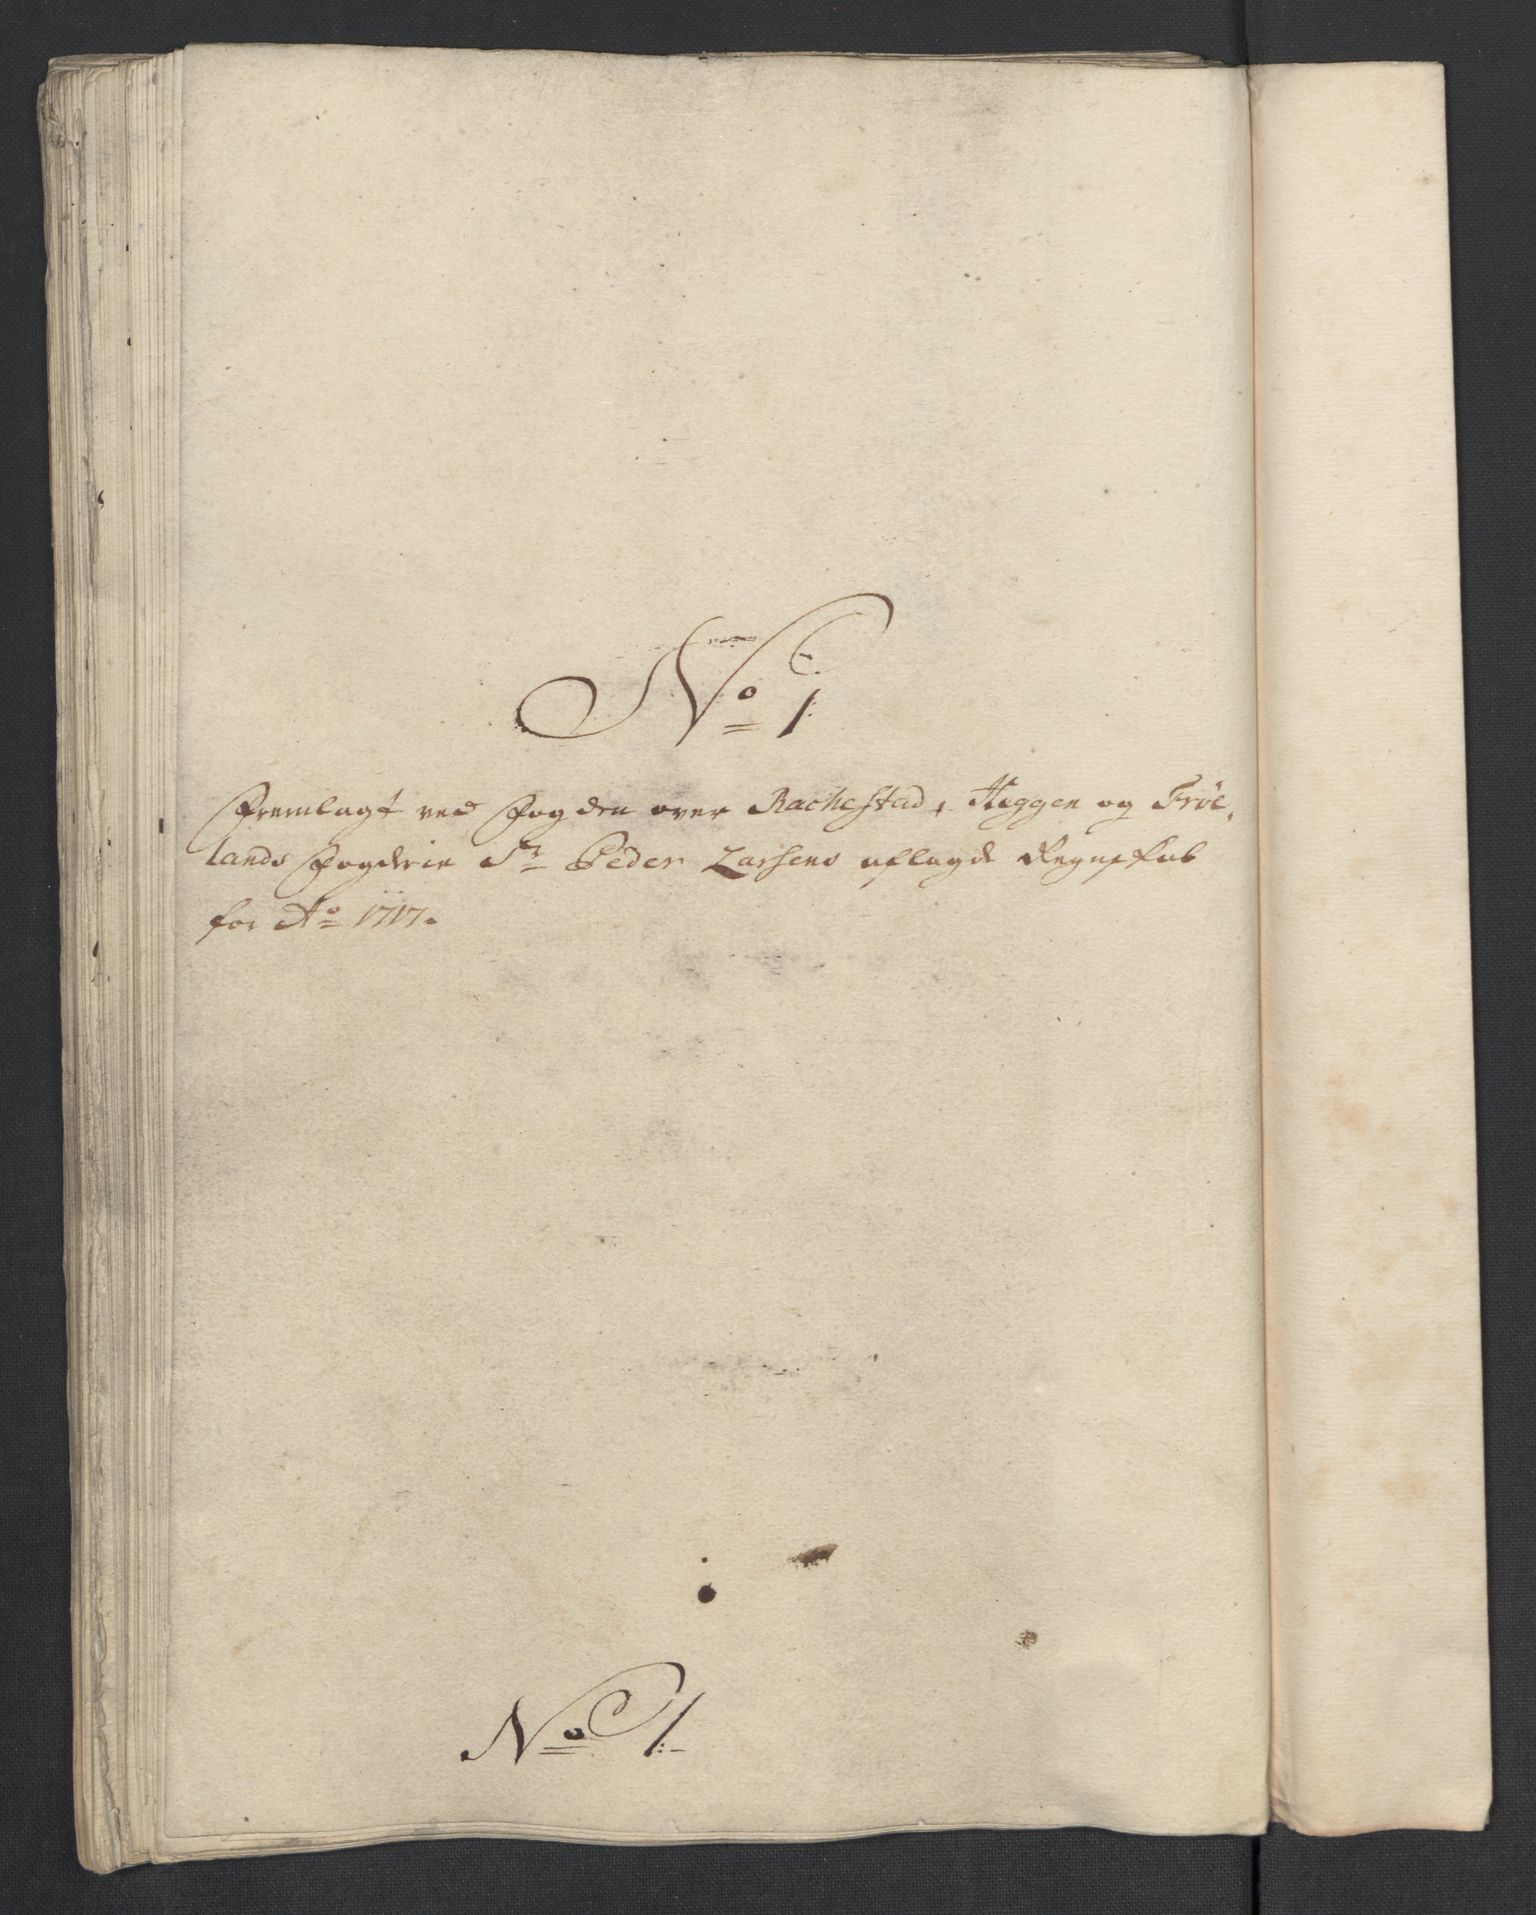 No 1
Fremlagt ved Fogden over Rachestad, Heggen og Fröe,
lands Fogderie Sr Peder Larsens aflagde Regnskab
for Ao 1717.
No 1